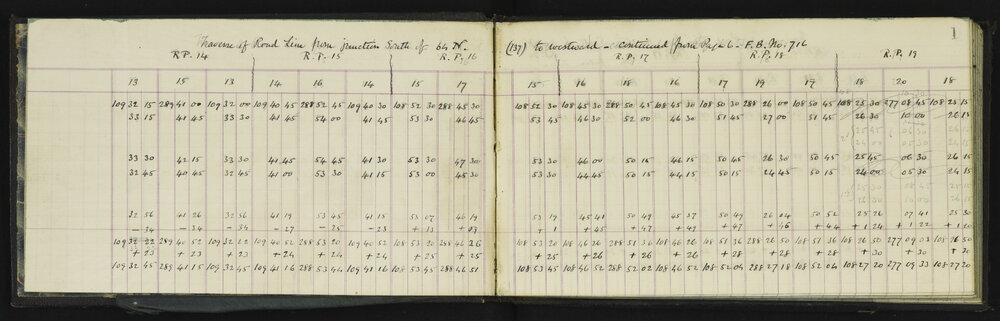 Traverse of Road Line from junction South of 64 N. (137) to westward - continued from Page 6 - F.B. No. 716
1
R.P. 14 R.P. 15 R.P. 16 R.P. 17 R.P. 18 R.P. 19
13 15 13 14 16 14 15 17 15 16 18 16 17 19 17 18 20 18
109 32 15 289 41 00 109 32 00 109 40 45 288 52 45 109 40 30 108 52 30 288 45 30 108 52 30 108 45 30 288 50 45 108 45 30 108 50 30 288 26 00 108 50 45 108 25 30 277 08 45 108 25 15
33 15 42 45 33 30 41 45 54 00 41 45 53 30 46 45 53 45 46 30 52 00 46 30 51 45 27 00 51 45 26 30 10 00 26 15
33 30 42 15 33 30 41 45 54 45 41 30 53 30 47 30 53 30 46 00 50 15 46 15 50 45 26 30 50 45 25 45 06 30 26 15
32 45 40 45 32 45 41 00 53 30 41 15 53 00 45 30 53 30 44 45 50 15 44 15 50 15 24 45 50 15 24 00 05 30 24 15
32 56 41 26 32 56 41 19 53 45 41 15 53 07 46 19 53 19 45 41 50 49 45 37 50 49 26 04 50 52 25 26 07 41 25 30
- 34 - 34 - 34 - 27 - 25 - 23 + 13 + 07 + 1 + 45 + 47 + 49 + 47 + 46 + 44 + 1 24 + 1 22 + 1 20
109 32 22 289 40 52 109 32 22 109 40 52 288 53 20 109 40 52 108 53 20 288 46 26 108 53 20 108 46 26 288 51 36 108 46 26 108 51 36 288 26 50 108 51 36 108 26 50 277 09 03 108 26 50
+ 23 + 23 + 23 + 24 + 24 + 24 + 25 + 25 + 25 + 26 + 26 + 26 + 28 + 28 + 28 + 30 + 30 + 30
109 32 45 289 41 15 109 32 45 109 41 16 288 53 44 109 41 16 108 53 45 288 46 51 108 53 45 108 46 52 288 52 02 108 46 52 108 52 04 288 27 18 108 52 04 108 27 20 277 09 33 108 27 20